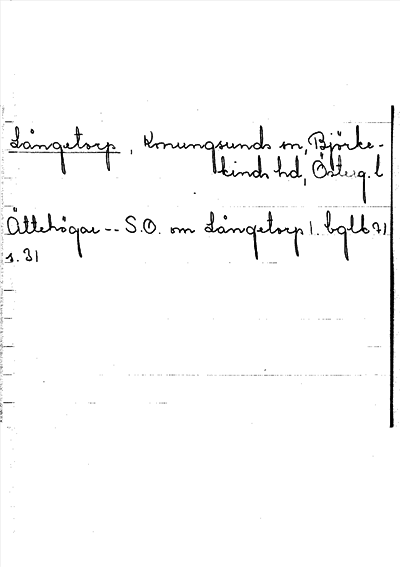 Långetorp, Konungsunds sn, Björke-
kinds hd, Österg. l
Ättehögar -- S.O. om Långetorp 1. bglb 71
s. 31